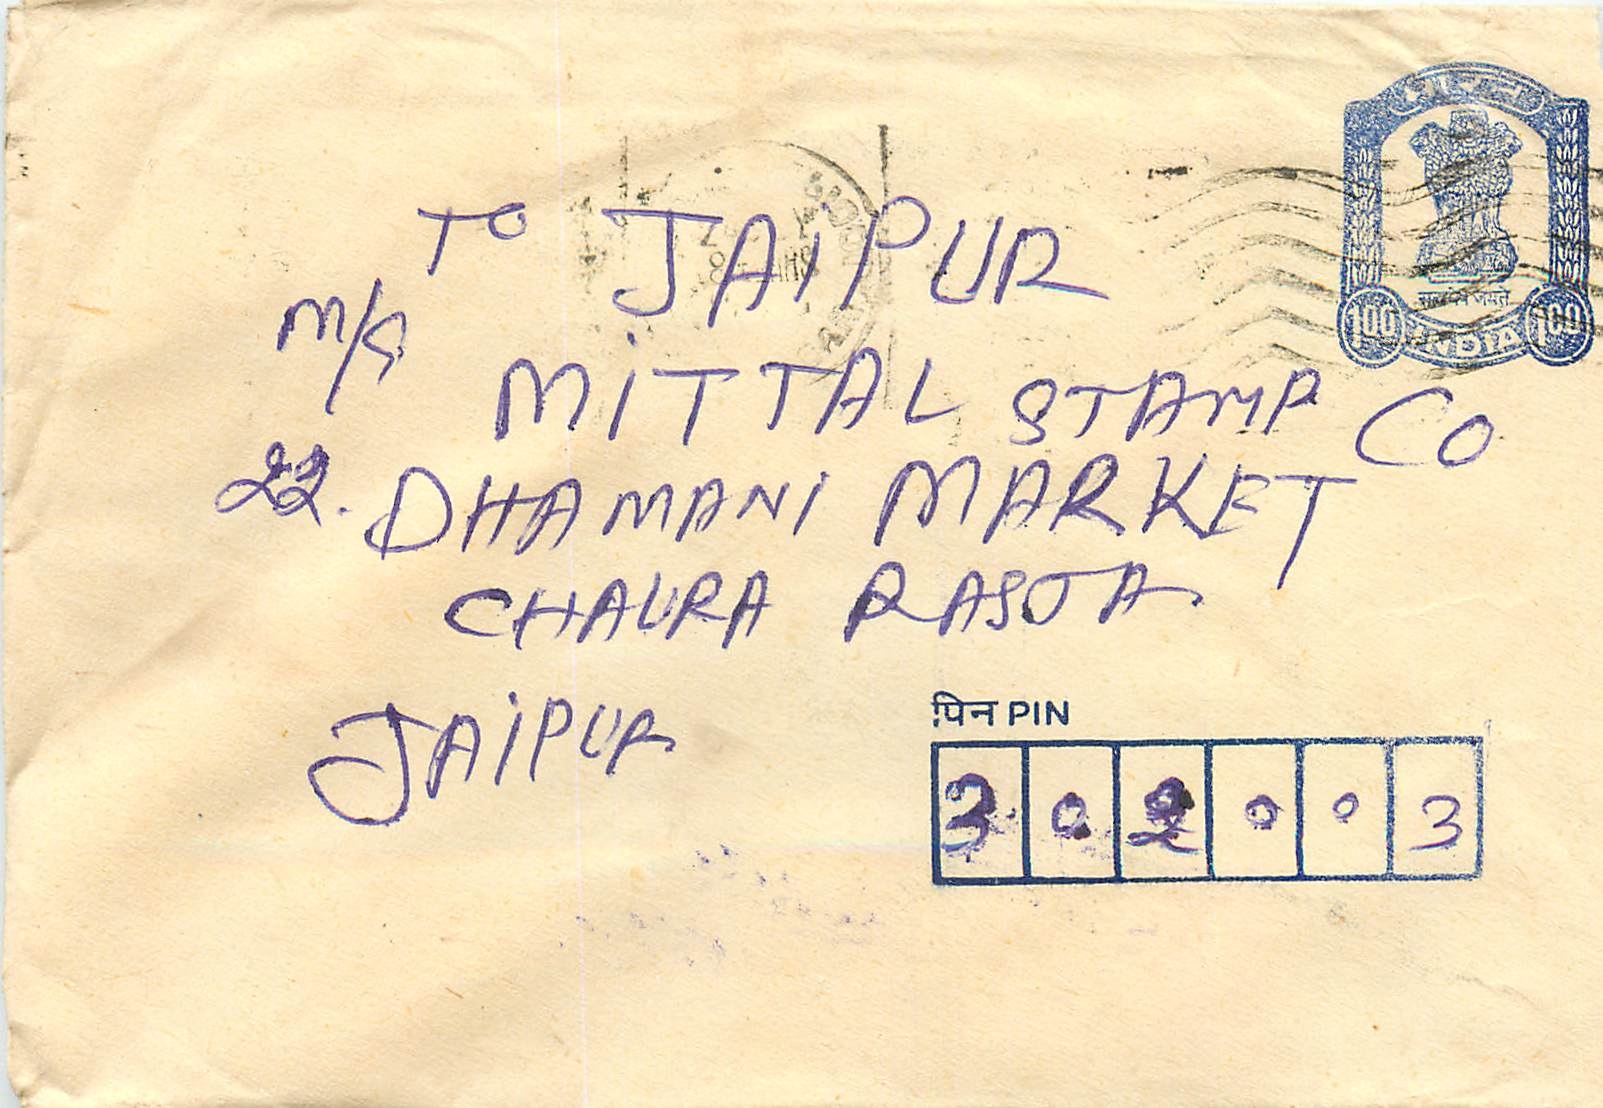 TO JAIPUR
M/S
MITTAL STAMP CO
22. DHAMANI MARKET
CHAURA RASTA
JAIPUR
पिन PIN
3 0 2 0 0 3
सत्यमेव जयते
1.00 INDIA 1.00